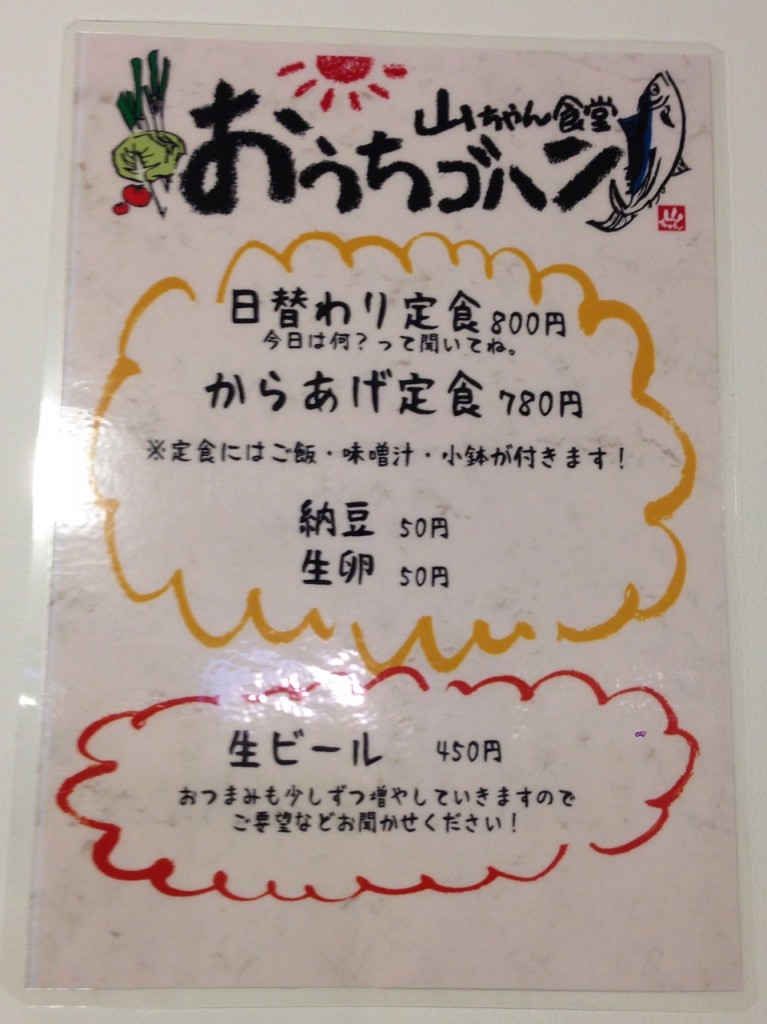 山ちゃん食堂
おうちゴハン
山ちゃん
日替わり定食 800円
今日は何？って聞いてね。
からあげ定食 780円
※定食にはご飯・味噌汁・小鉢が付きます！
納豆 50円
生卵 50円
生ビール 450円
おつまみも少しずつ増やしていきますので
ご要望などお聞かせください！